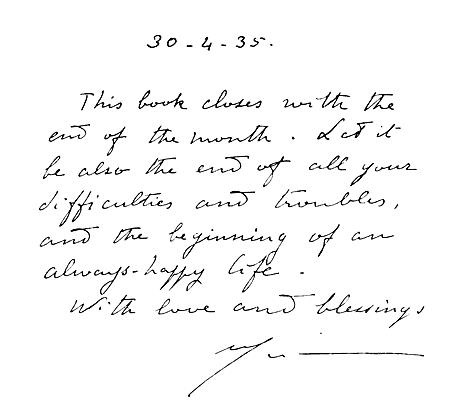 30-4-35.
This book closes with the
end of the month. Let it
be also the end of all your
difficulties and troubles,
and the beginning of an
always-happy life.
With love and blessings